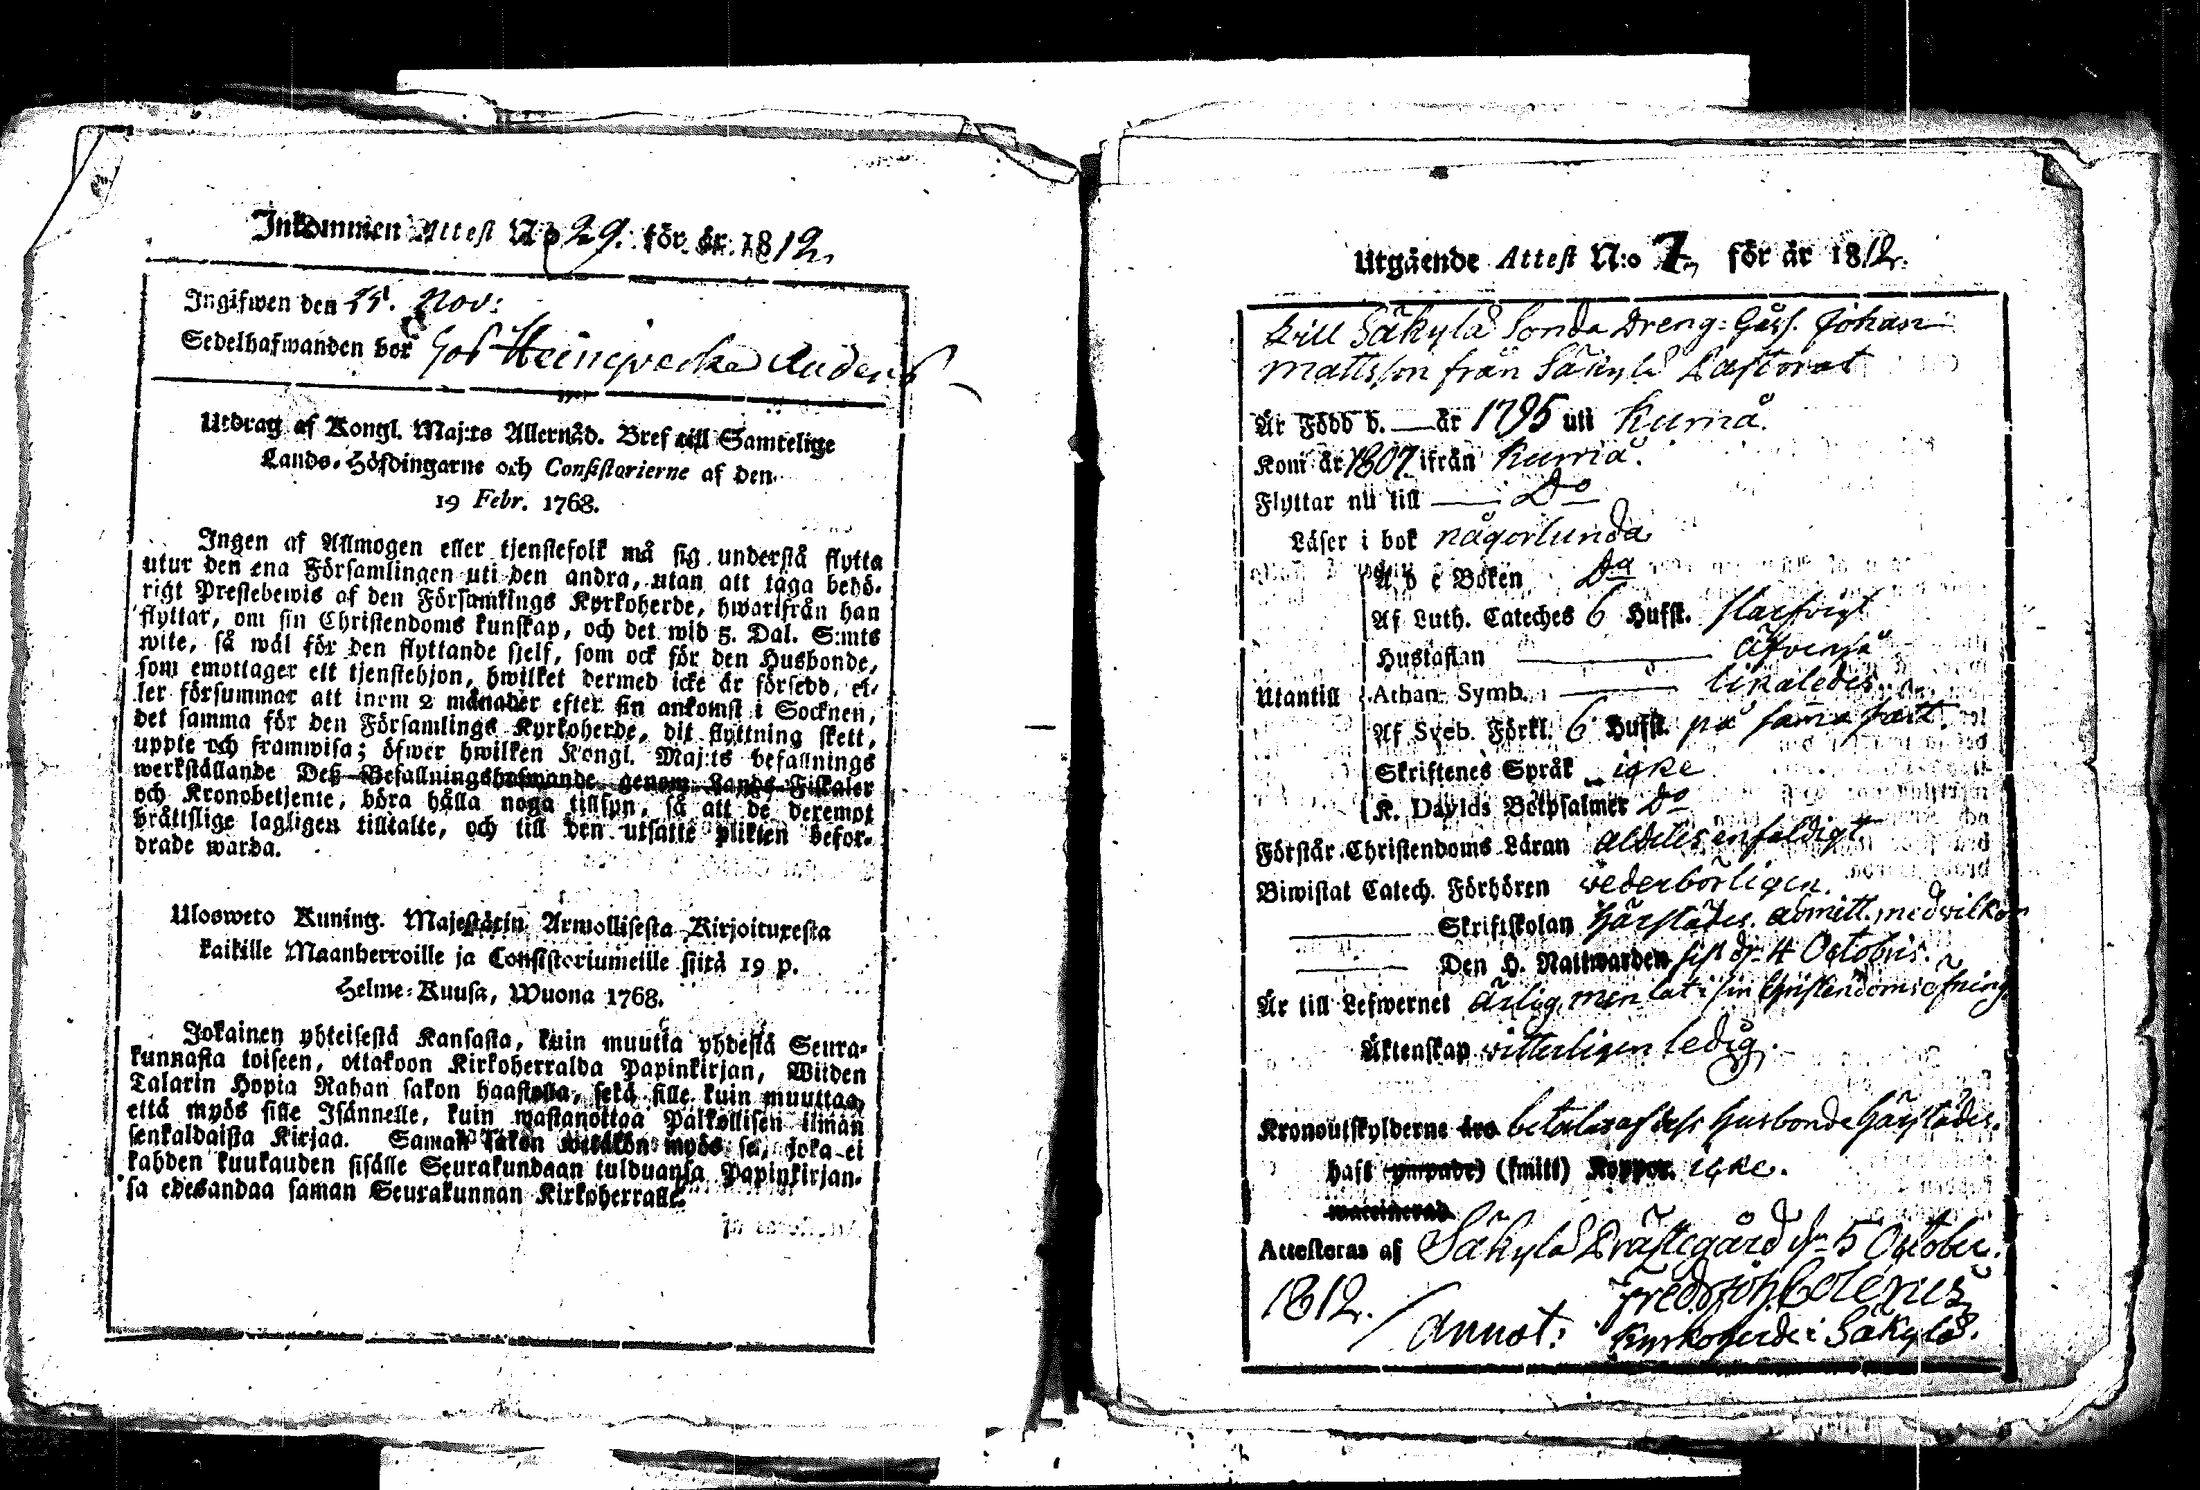 Inkommen Attest N:o 29. för år 1812.
Ingifwen den 25. Nov:
Sedelhafwanden bor hos Heinqwecka Anders
Utdrag af Kongl. Maj:ts Allernåd. Bref till Samtelige
Lands-Höfdingarne och Consistorierne af den
19 Febr. 1768.
Ingen af Allmogen eller tjenstefolk må sig understå flytta
utur den ena Församlingen uti den andra, utan att taga behö-
rigt Prestebewis af den Församlings Kyrkoherde, hwarifrån han
flyttar, om sin Christendoms kunskap, och det wid 5. Dal. S:mts
wite, så wäl för den flyttande sjelf, som ock för den Husbonde,
som emottager ett tjenstehjon, hwilket dermed icke är försedd, el-
ler försummar att inom 2 månader efter sin ankomst i Socknen,
det samma för den Församlings Kyrkoherde, dit flyttning skett,
uppte och framwisa; öfwer hwilken Kongl. Maj:ts befallnings
werkställande Deß Befallningshafwande genom Lands-Fiskaler
och Kronobetjente, böra hålla noga tillsyn, så att de deremot
brättslige lagligen tilltalte, och till den utsatte plikten befor-
drade warda.
Ulosweto Kuning. Majestätin Armollisesta Kirjoituxesta
kaikille Maanherroille ja Consistoriumeille siitä 19 p.
Helme-Kuusa, Wuona 1768.
Jokainen yhteisestä Kansasta, kuin muutta yhdestä Seura-
kunnasta toiseen, ottakoon Kirkoherralda Papinkirjan, Wiiden
Talarin Hopia Rahan sakon haastolla, sekä sille kuin muuttaa,
että myös sille Isännelle, kuin wastanottaa Palkollisen ilman
senkaldaista Kirjaa. Saman sakon wetäkön myös se, joka ei
kahden kuukauden sisälle Seurakundaan tulduansa Papinkirjan-
sa edesandaa saman Seurakunnan Kirkoherralle.
Utgående Attest N:o 7, för år 1812.
till Säkylä Sonda Dreng: Gåss. Johan
Mattsson från Säkylä Pastorat
Är Född d. — år 1795 uti Kumå.
Kom år 1807 ifrån Kumå.
Flyttar nu till — Do
Läser i bok någorlunda
A b c Boken Do
Af Luth. Cateches 6 Hufst. slarfvigt
Hustaflan — äfvenså
Utantill Athan. Symb. — likaledes
Af Sveb. Förkl. 6 Hufst. på sama sätt
Skriftenes Språk icke
K. Davids Botpsalmer Do
Förstår Christendoms Läran aldeles enfaldigt
Biwistat Catech. Förhören vederbörligen.
— Skriftskolan härstädes. admitt. med vilkor
— Den H. Nattwarden sist d. 4 Octobris.
Är till Lefwernet ärlig, men lat i sin Christendoms öfning
Äktenskap vitterligen ledig.
Kronoutskylderne äro betalas af dess husbonde härstädes.
haft (ympade) (smitt) Koppor. icke.
waccinerad
Attesteras af Säkylä Prästegård d. 5 October.
1812. / Annot:
Fredr. Joh. Colérus
Kyrkoherde i Säkylä.